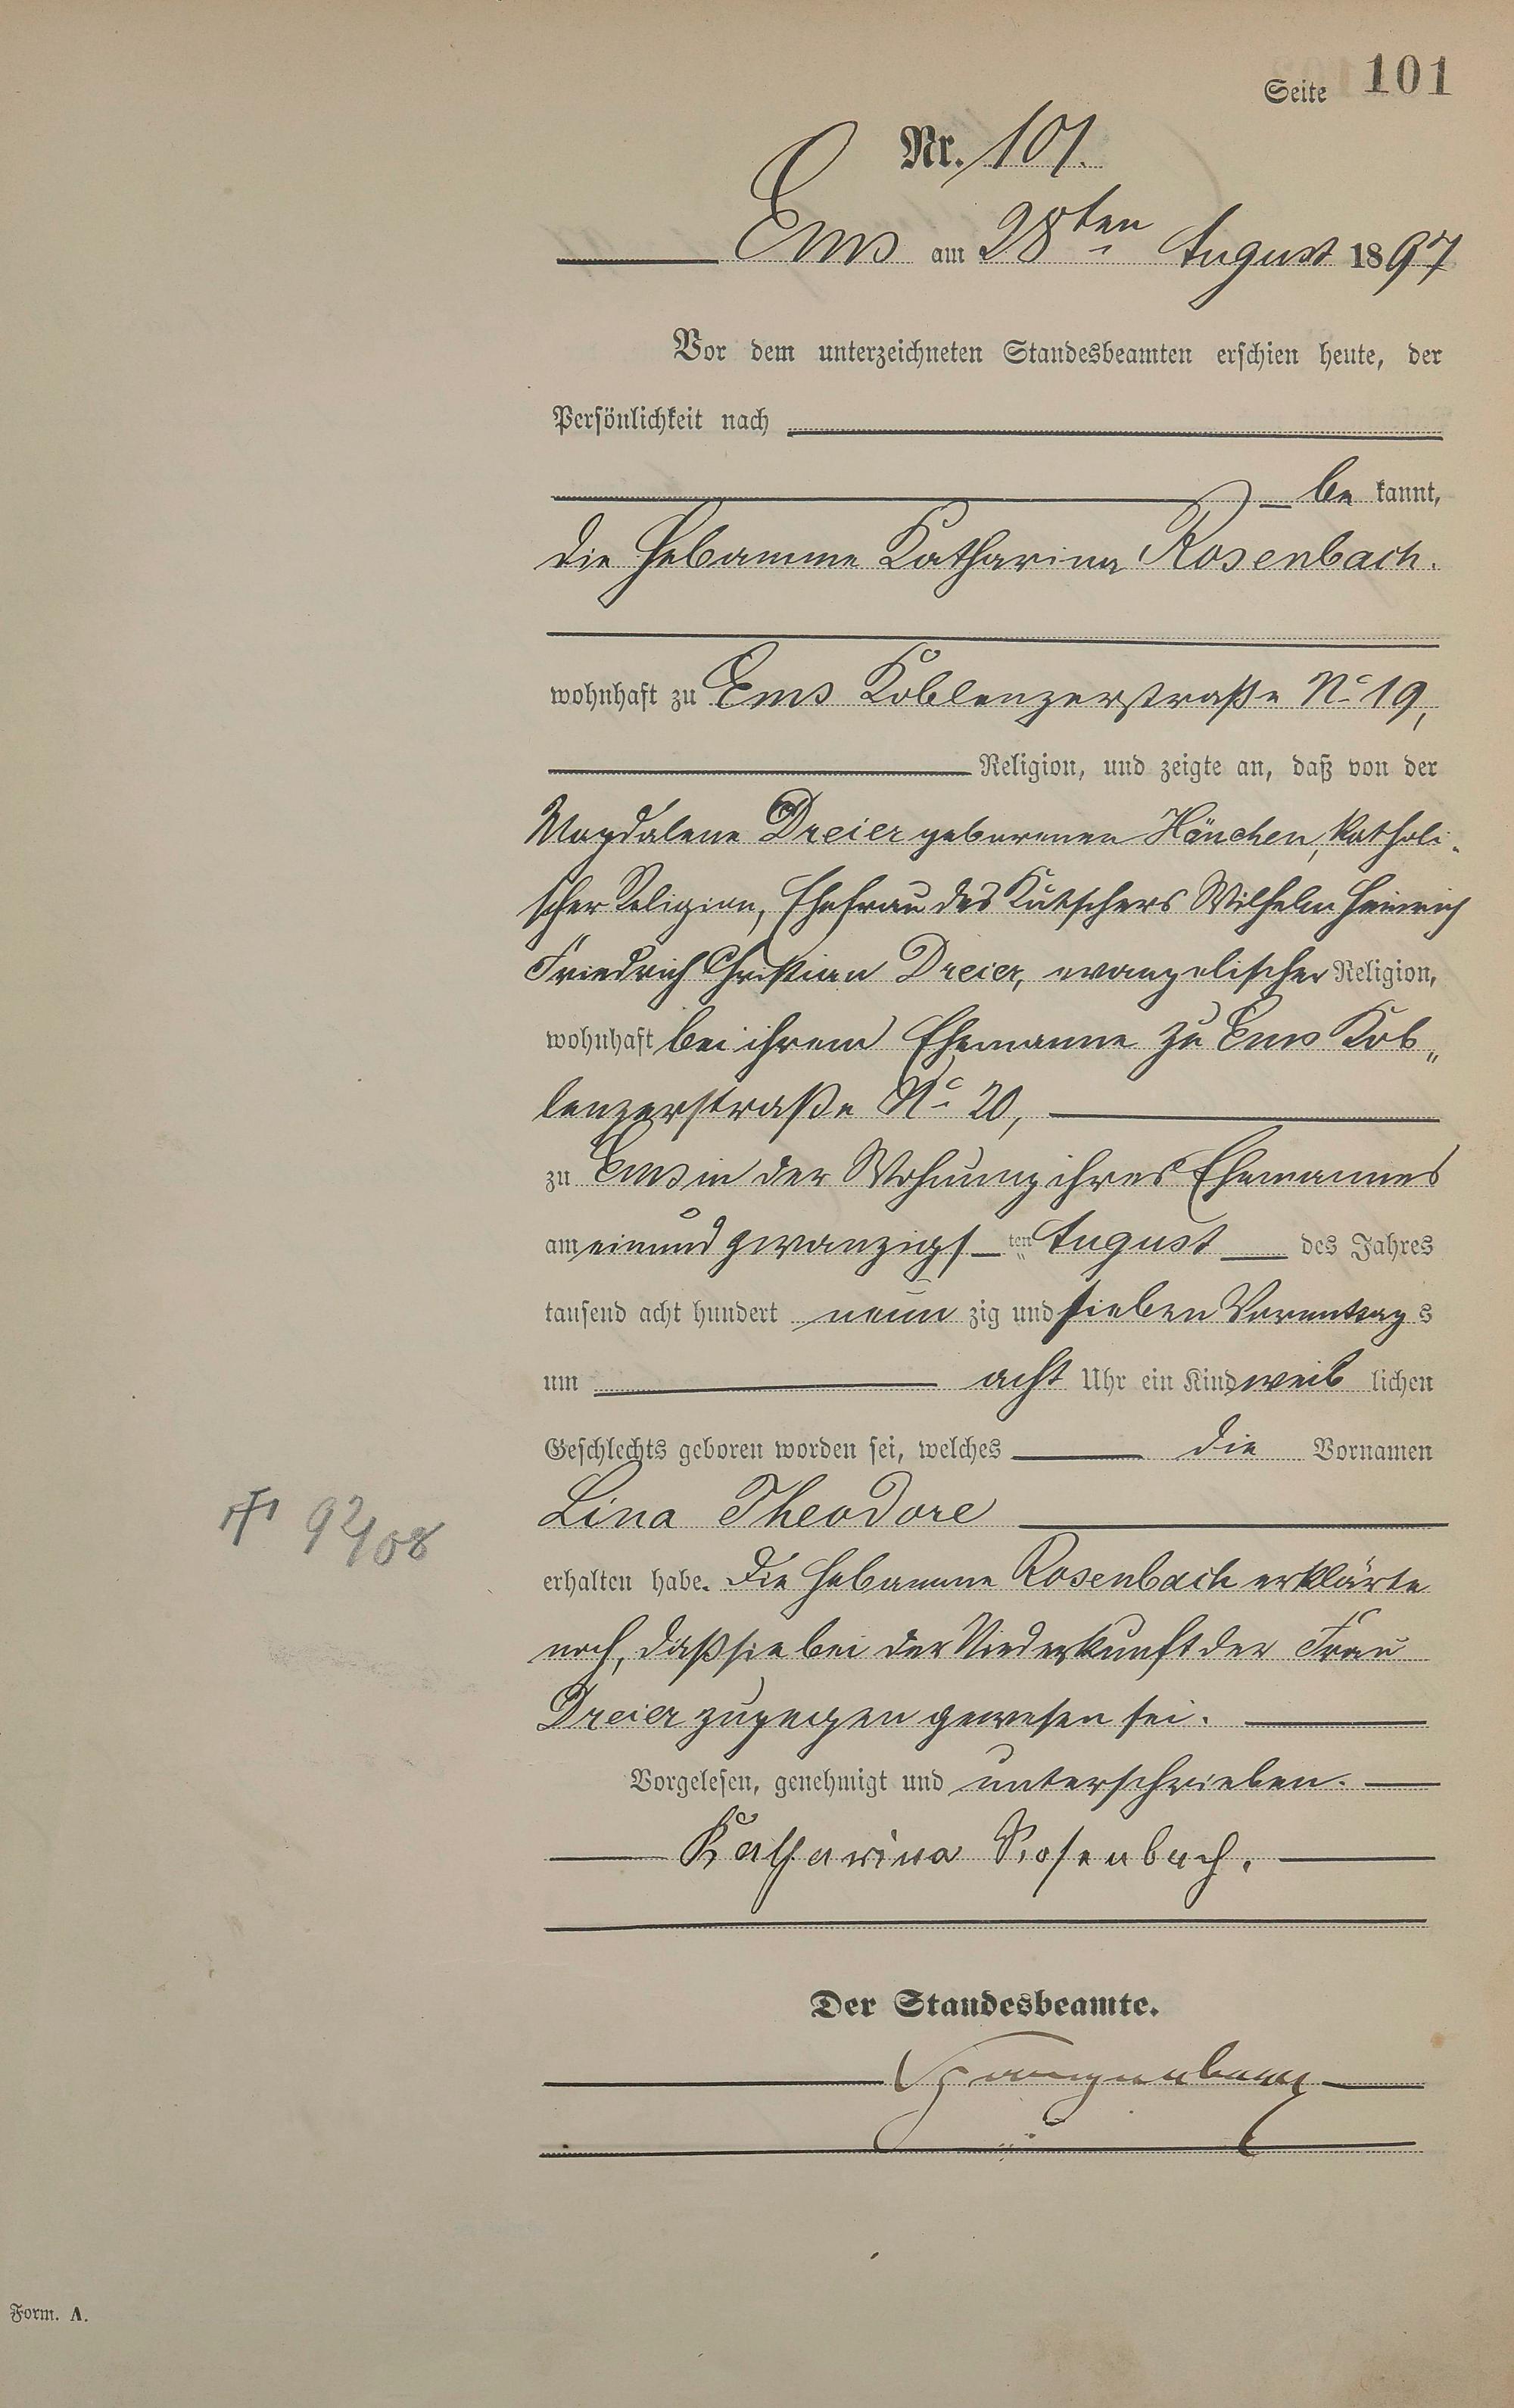 Seite 101
Nr. 101.
Ems am 28ten August 1897
Vor dem unterzeichneten Standesbeamten erschien heute, der
Persönlichkeit nach
be kannt,
die Hebamme Katharina Rosenbach.
wohnhaft zu Ems Koblenzerstraße No 19,
Religion, und zeigte an, daß von der
Magdalene Dreier geborenen Hänchen, katholi-
scher Religion, Ehefrau des Kutschers Wilhelm Heinrich
Friedrich Christian Dreier, evangelischer Religion,
wohnhaft bei ihrem Ehemanne zu Ems Kob„
lenzerstraße No 20,
zu Ems in der Wohnung ihres Ehemannes
am einund zwanzigs ten August des Jahres
tausend acht hundert neun zig und sieben Vormittag s
um acht Uhr ein Kind weib lichen
Geschlechts geboren worden sei, welches die Vornamen
Lina Theodore
✝ 92/08
erhalten habe. Die Hebamme Rosenbach erklärte
noch, daß sie bei der Niederkunft der Frau
Dreier zugegen gewesen sei.
Vorgelesen, genehmigt und unterschrieben.
Katharina Rosenbach.
Der Standesbeamte.
Form. A.